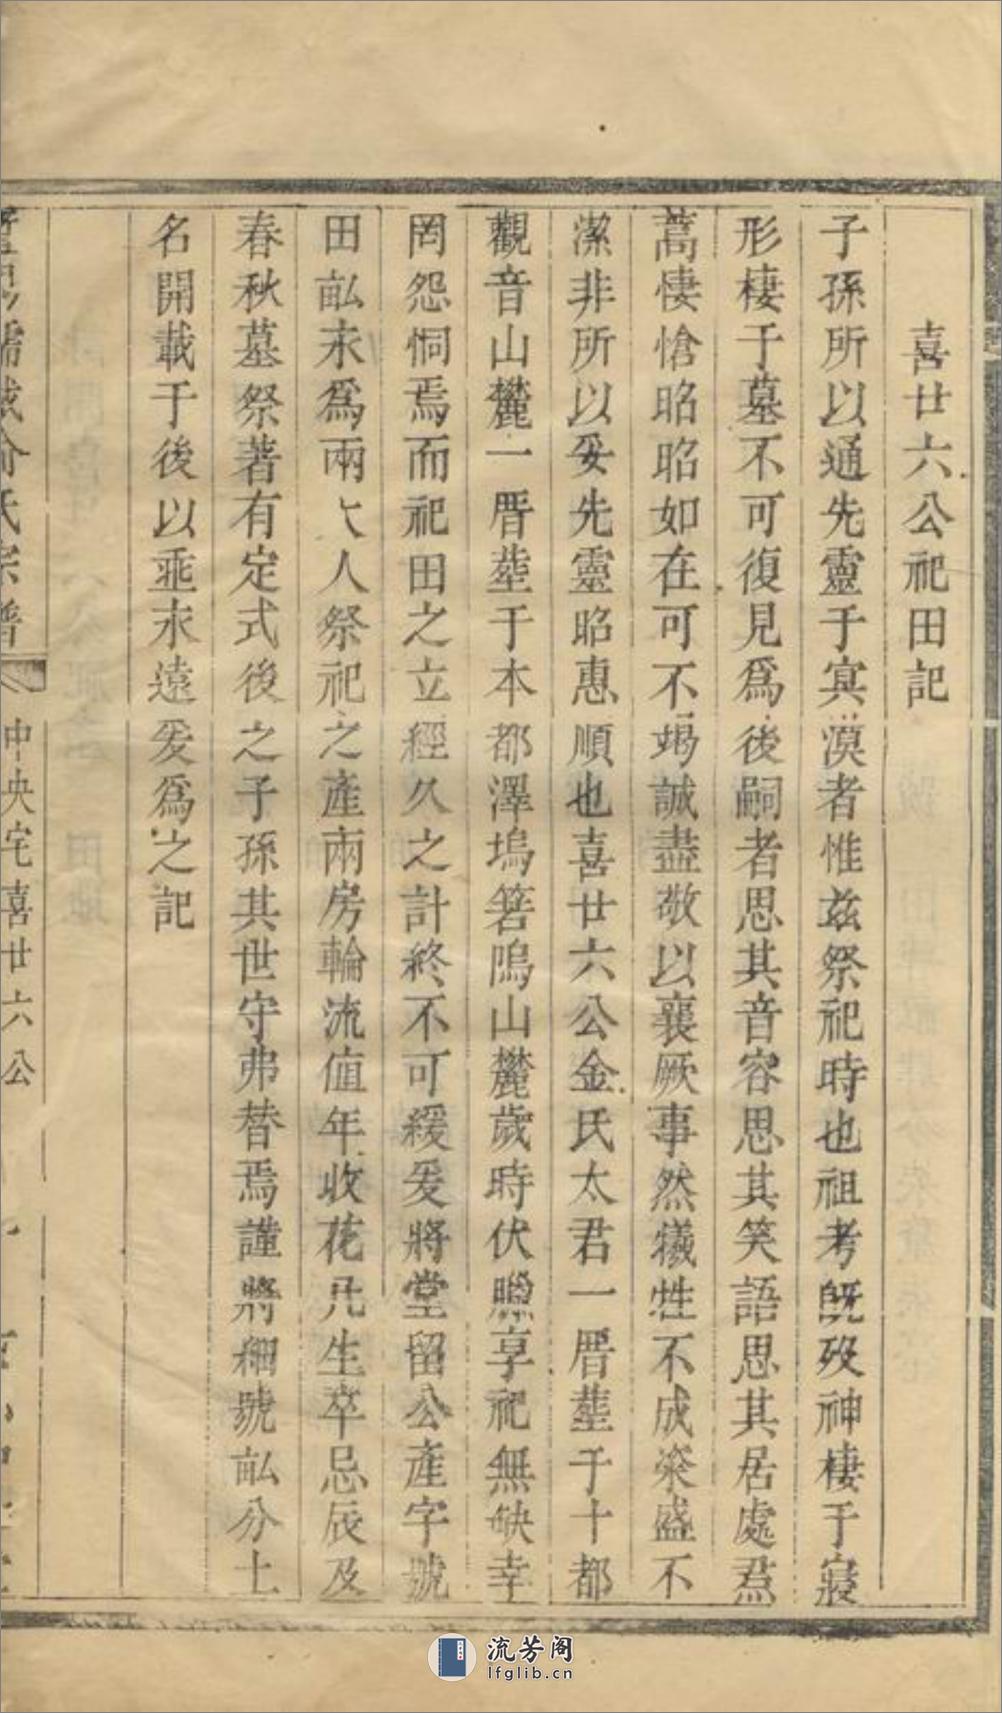 喜廿六公祀田記
子孫所以通先靈于㝠漠者惟兹祭祀時也祖考旣歿神棲于寢
形棲于墓不可復見爲後嗣者思其音容思其笑語思其居處焄
蒿悽愴昭昭如在可不竭誠盡敬以襄厥事然犧牲不成粢盛不
潔非所以妥先靈昭惠順也喜廿六公金氏太君一厝塟于十都
觀音山麓一厝塟于本都澤塢箬隖山麓歲時伏臘享祀無缺幸
罔怨恫焉而祀田之立經久之計終不可緩爰將堂留公產字號
田畝永爲兩大人祭祀之產兩房輪流值年收花凡生卒忌辰及
春秋墓祭著有定式後之子孫其世守弗替焉謹將細號畝分土
名開載于後以垂永遠爰爲之記
氏宗譜
中央宅喜廿六公
流芳阁
lfglib.cn